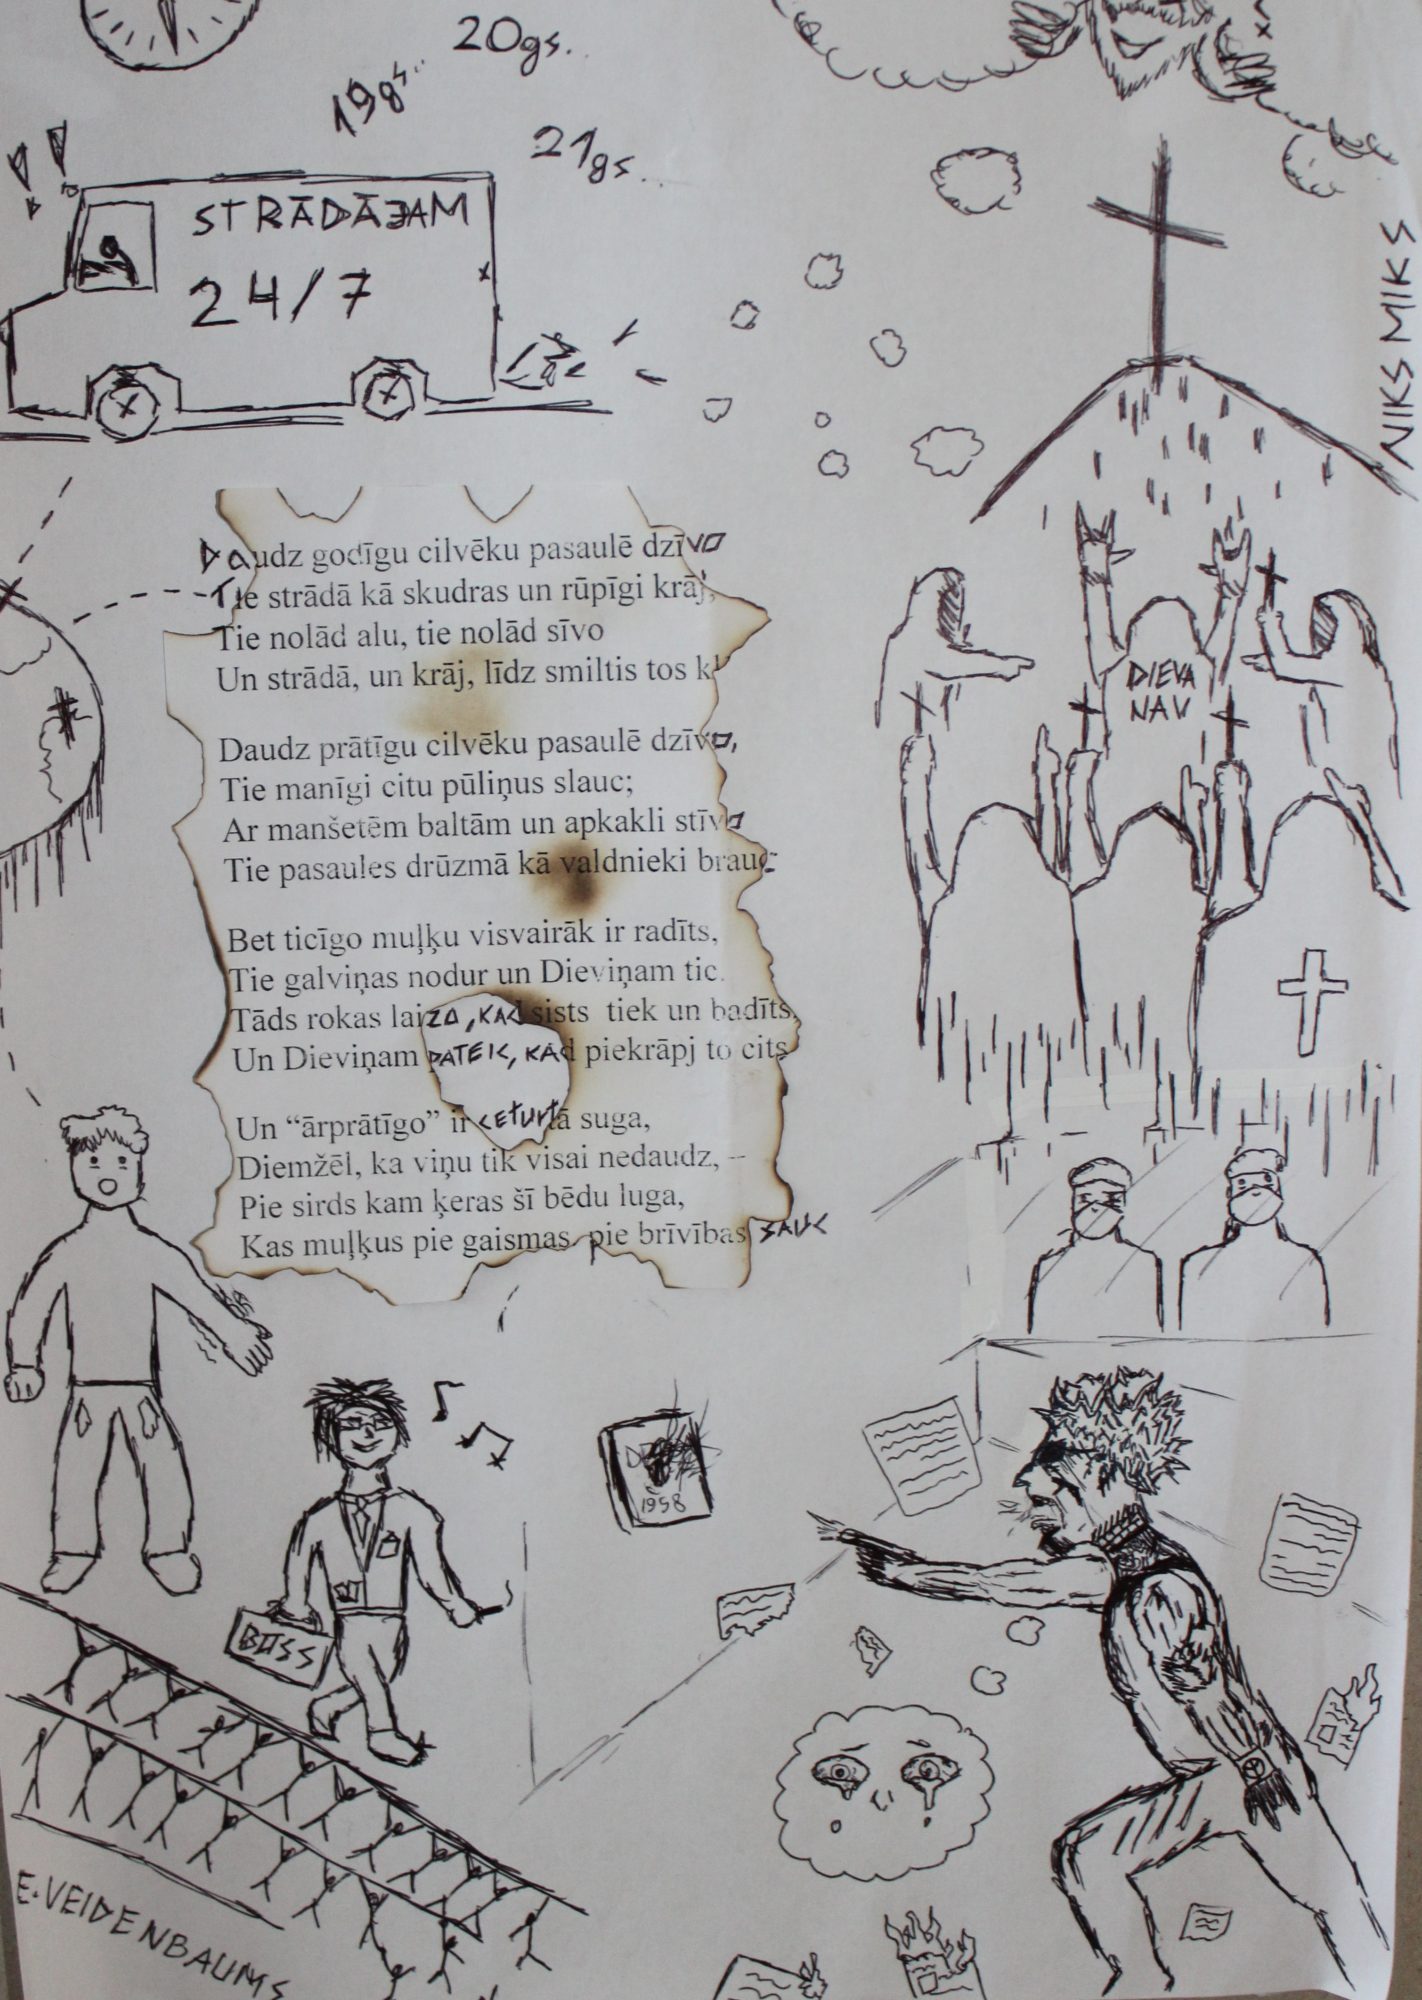 20gs..
19gs..
21gs..
STRĀDĀJAM
24/7
NIKS MIKS
Daudz godīgu cilvēku pasaulē dzīvo
Tie strādā kā skudras un rūpīgi krāj,
Tie nolād alu, tie nolād sīvo
Un strādā, un krāj, līdz smiltis tos
Daudz prātīgu cilvēku pasaulē dzīvo,
Tie manīgi citu pūliņus slauc;
Ar manšetēm baltām un apkakli stīvo
Tie pasaules drūzmā kā valdnieki brauc
Bet ticīgo muļķu visvairāk ir radīts,
Tie galviņas nodur un Dieviņam tic.
Tāds rokas laiza, kad sists tiek un badīts,
Un Dieviņam pateic, kad piekrāpj to cits
Un “ārprātīgo” ir ceturtā suga,
Diemžēl, ka viņu tik visai nedaudz, –
Pie sirds kam ķeras šī bēdu luga,
Kas muļķus pie gaismas, pie brīvības sauc
DIEVA
NAV
1958
BOSS
E.VEIDENBAUMS